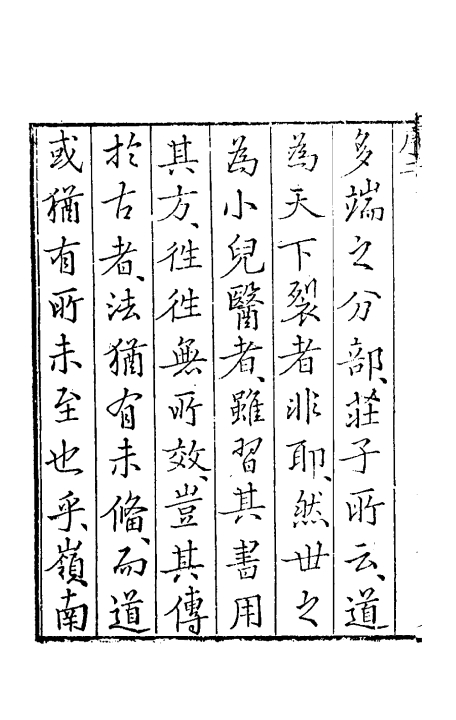 多端之分部、莊子所云、道
為天下裂者非耶、然世之
為小兒醫者、雖習其書用
其方、徃徃無所效、豈其傳
於古者、法猶有未俻、而道
或猶有所未至也乎、嶺南